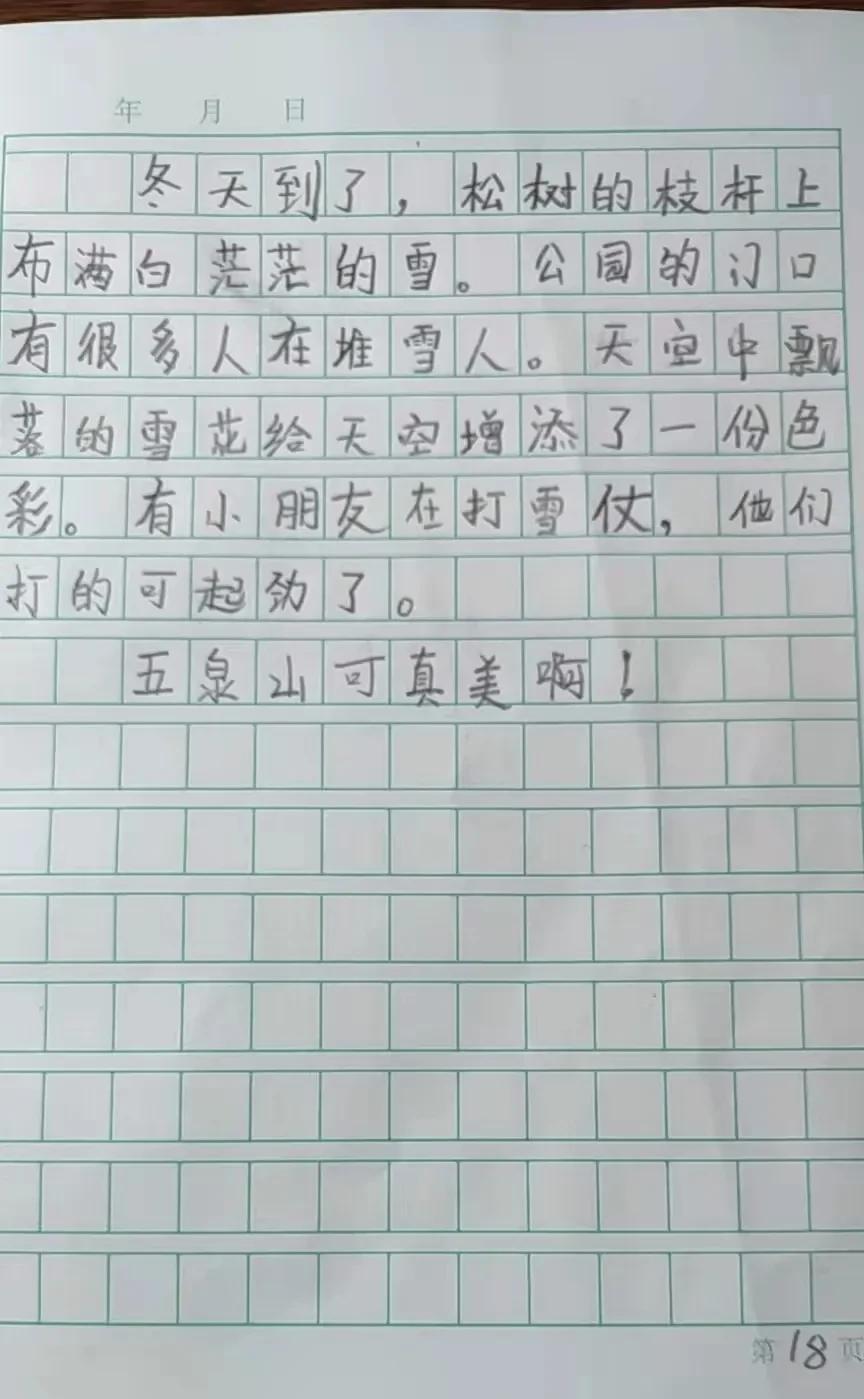 年 月 日
冬天到了，松树的枝杆上
布满白茫茫的雪。公园的门口
有很多人在堆雪人。天空中飘
落的雪花给天空增添了一份色
彩。有小朋友在打雪仗，他们
打的可起劲了。
五泉山可真美啊！
第18页